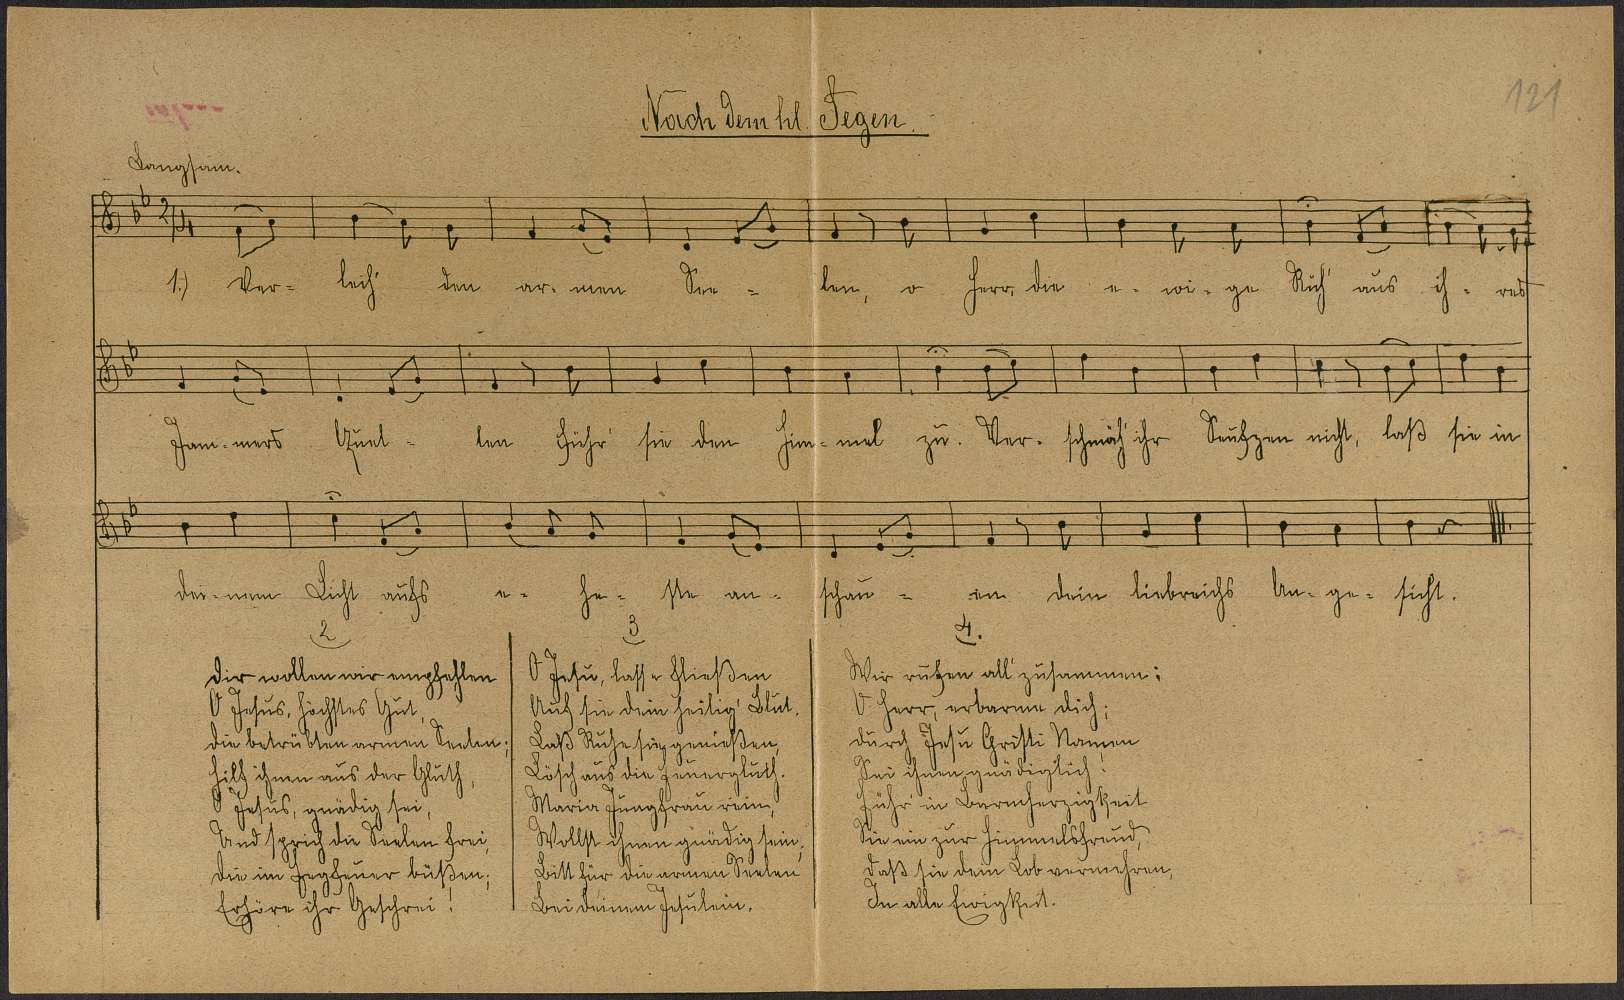 121
Nach dem hl. Segen.
Langsam.
2/4
1.) Ver- leih' den ar- men See - len, o Herr, die e- wi- ge Ruh' aus ih- res
Jam- mers Quel - len führ' sie den Him- mel zu. Ver- schmäh' ihr Seufzen nicht, laß sie in
dei- nem Licht aufs e- he- ste an- schau - en dein liebreichs An- ge- sicht.
2
Dir wollen wir empfehlen
O Jesus, höchstes Gut,
Die betrübten armen Seelen;
Hilf ihnen aus der Gluth,
O Jesus, gnädig sei,
Und sprich die Seelen frei,
Die im Fegfeuer büßen;
Erhöre ihr Geschrei!
3
O Jesu, lasse fließen
Auf sie dein heilig' Blut.
Laß Ruhe sie genießen,
Lösch aus die Feuergluth.
Maria Jungfrau rein,
Wollst ihnen gnädig sein,
Bitt für die armen Seelen
Bei deinem Jesulein.
4.
Wir rufen all' zusammen:
O Herr, erbarme dich;
Durch Jesu Christi Namen
Sei ihnen gnädiglich!
Führ' in Barmherzigkeit
Sie ein zur Himmelsfreud,
Daß sie dein Lob vermehren,
In alle Ewigkeit.